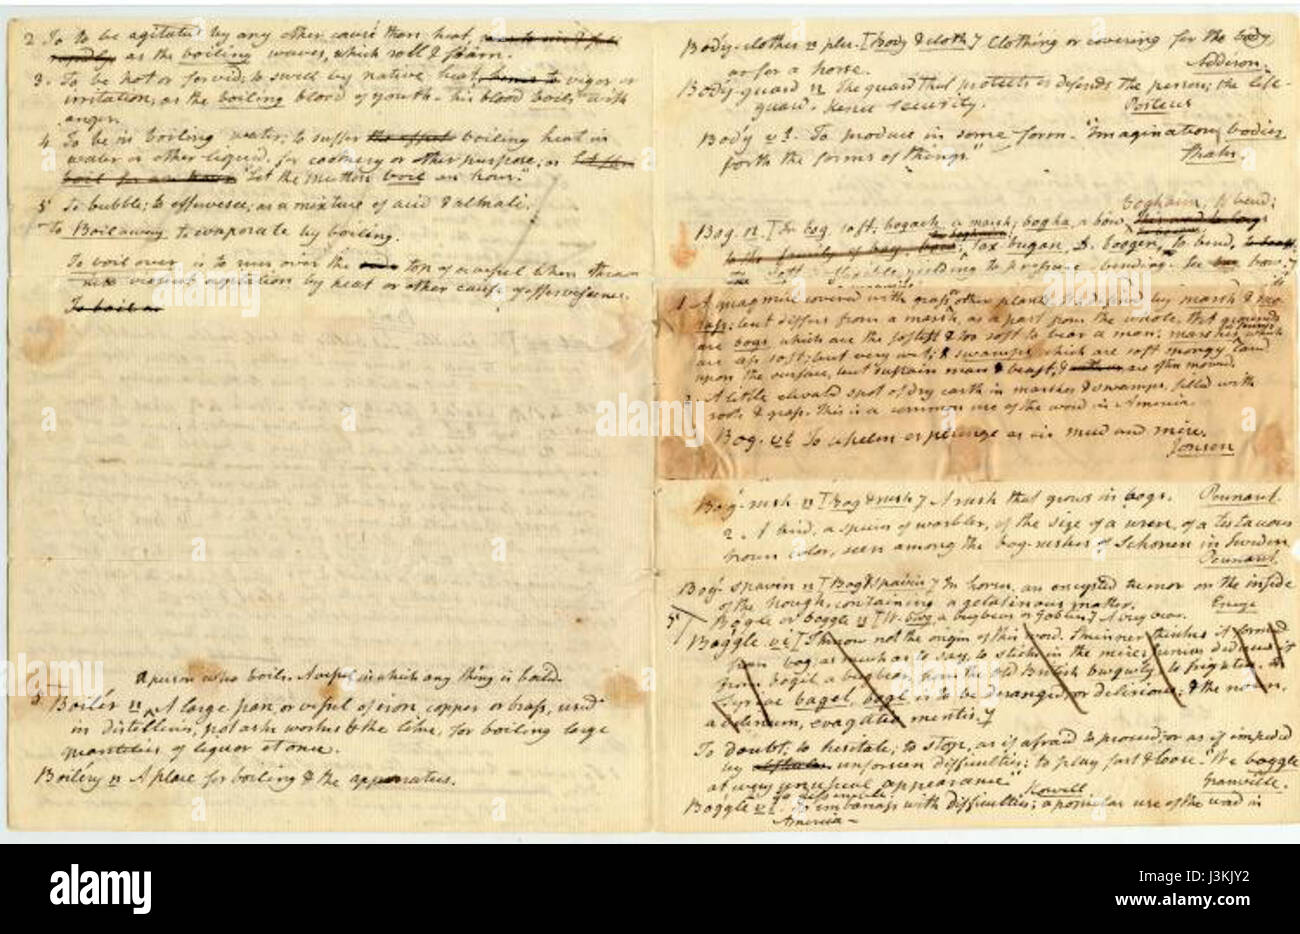 2 To to be agitated by any other cause than heat,
as the boiling waves, which roll & foam.
3. To be hot or fervid; to swell by native heat, vigor or
irritation, as the boiling blood of youth. his blood boils with
anger.
4. To be in boiling water; to suffer the effect boiling heat in
water or other liquid, for cookery or other purpose; as
boil for an hour. "Let the mutton boil an hour."
5 To bubble; to effervesce; as a mixture of acid & alkali.
To Boil away, to evaporate by boiling.
To boil over, is to run over the top of a vessel when thrown
into violent agitation by heat or other cause of effervescence.
To boil
A person who boils. A vessel in which any thing is boiled.
Boilér n A large pan, or vessel of iron, copper or brass, used
in distilleries, potash works & the like, for boiling large
quantities of liquor at once.
Boilery n A place for boiling & the apparatus.
Body-clothes n plu. [Body & cloth] Clothing or covering for the body
as for a horse. Addison.
Body-guard n The guard that protects or defends the person; the life-
guard. hence security. Porteus
Body v t. To produce in some form. "Imagination bodies
forth the forms of things." Shaks.
Boghaim, to bend;
Bog. n. [Ir bog soft; bogach, a marsh; bogha, a bow, This word belongs
to the family of Sax bugan, D. boogen, to bend,
soft flexible, yielding to pressure bending. See bow]
1. A quagmire covered with grass or other plants. It is defined by marsh & mo-
rass; but differs from a marsh, as a part from the whole. Wet grounds
are bogs, which are the softest & too soft to bear a man; marshes, which
are less soft; but very wet; & swamps, which are soft spongy land
upon the surface, but sustain man & beast, & are often mowed.
2. A little elevated spot of dry earth in marshes & swamps, filled with
roots & grass. This is a common use of the word in America.
Bog. v t To whelm or plunge as in mud and mire.
Jonson
Bog-rush n [Bog & rush] A rush that grows in bogs. Pennant.
2. A bird, a species of warbler, of the size of a wren, of a testaceous
brown color, seen among the bog-rushes of Schonen in Sweden
Pennant.
Bog-spavin n [Bog & spavin] In horses, an encysted tumor on the inside
of the hough, containing a gelatinous matter. Encyc
Bogle or boggle n [W. bwg a bugbear or goblin] A bugbear.
Boggle v i [I know not the origin of this word. Skinner thinks it formed
from bog, as much as to say, to stick in the mire; Junius deduces it
from bogil a bugbear, from the old British bwgwly to frighten. In
Syriac bagel, bagl is to be deranged, or delirious; & the noun,
a delirium, evagatio mentis.]
To doubt; to hesitate; to stop, as if afraid to proceed, or as if impeded
by unforseen difficulties; to play fast & loose. "We boggle
at every unusual appearance." Granville.
to dissemble. Howell
Boggle v t. To embarrass with difficulties; a popular use of the word in
America—
alamy
Image ID: J3KJY2
www.alamy.com